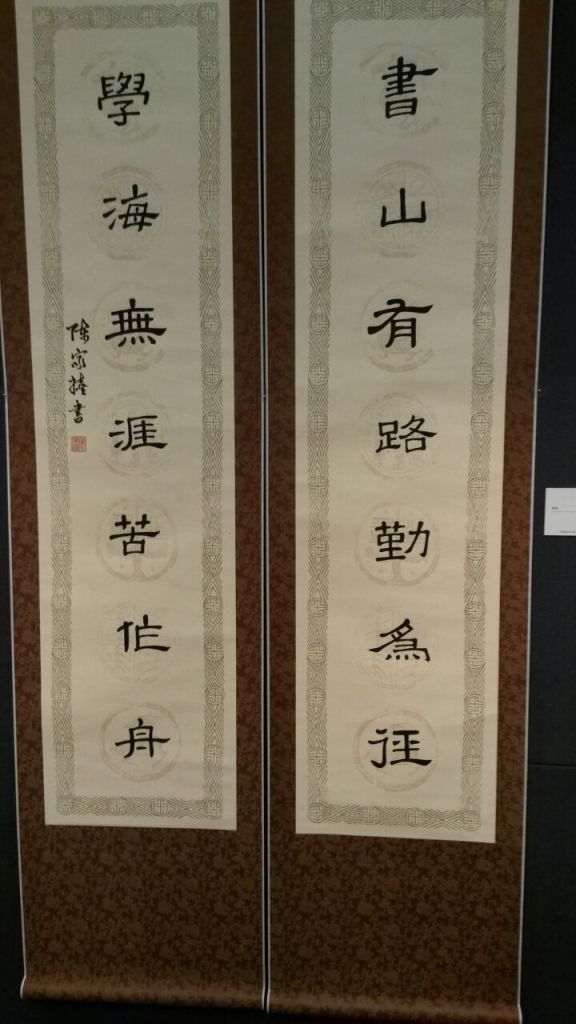 書山有路勤爲徑
學海無涯苦作舟
陳家書